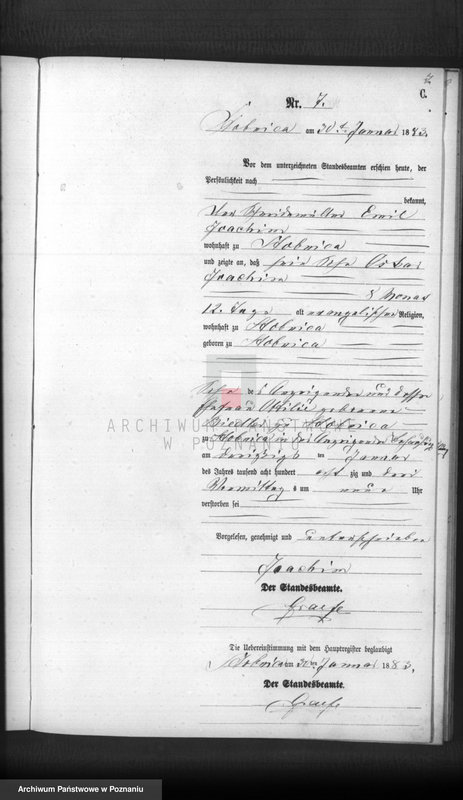 7
C.
Nr. 7.
Stobnica am 30ten Januar 1883.
Vor dem unterzeichneten Standesbeamten erschien heute, der
Persönlichkeit nach
bekannt,
der Schneidemüller Emil
Joachim
wohnhaft zu Stobnica
und zeigte an, daß sein Sohn Oskar
Joachim
8 Monat
12 Tage alt evangelischer Religion,
wohnhaft zu Stobnica
geboren zu Stobnica
Sohn des Anzeigenden und dessen
Ehefrau Ottilie geborene
zu Stobnica
zu Stobnica in des Anzeigenden
am dreißigsten Januar
des Jahres tausend acht hundert acht zig und drei
Vormittags um neun Uhr
verstorben sei
Vorgelesen, genehmigt und unterschrieben
Joachim
Der Standesbeamte.
Graefe
Die Uebereinstimmung mit dem Hauptregister beglaubigt
Stobnica am 30ten Januar 1883.
Der Standesbeamte.
Graefe
ARCHIWUM PAŃSTWOWE
W POZNANIU
Archiwum Państwowe w Poznaniu